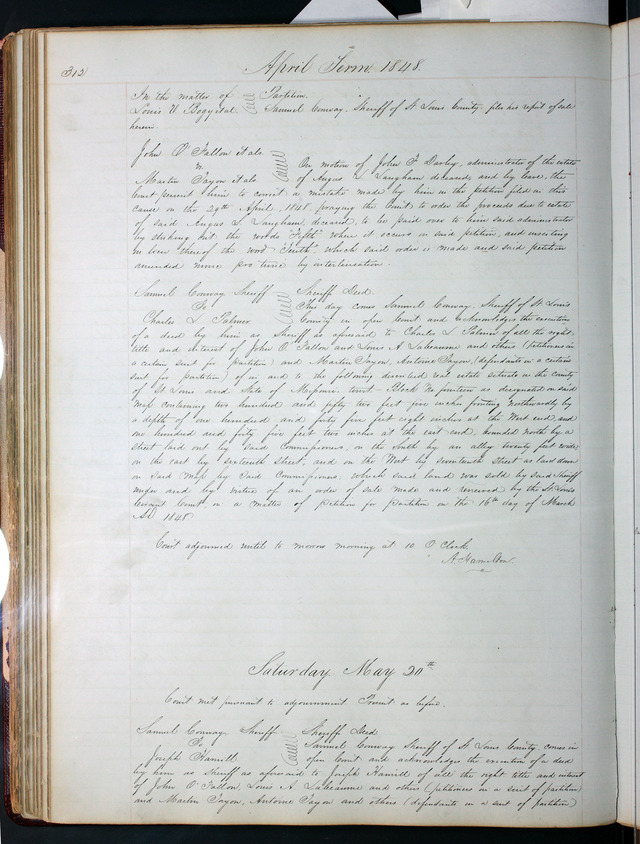 312
April Term 1848.
In the matter of Partition.
Louis V. Bogy et al. Samuel Conway, Sheriff of St Louis County, files his report of sale
herein
John O'Fallon et als
vs On motion of John F Darby, administrator of the estate
Martin Tayon et als of Angus L Langham deceased, and by leave, the
Court permit him to correct a mistake made by him in the petition filed in this
cause on the 29th April 1848, praying the Court to order the proceeds due to estate
of said Angus L Langham, deceased, to be paid over to him said administrator
by striking out the words "Fifth" where it occurs in said petition, and inserting
in lieu thereof the word "Tenth", which said order is made and said petition
amended nunc pro tunc by interlineation.
Samuel Conway Sheriff Sheriff Deed.
To This day comes Samuel Conway, Sheriff of St Louis
Charles L. Palmer County in open Court and acknowledges the execution
of a deed by him as Sheriff as aforesaid to Charles L Palmer of all the right
title and interest of John O'Fallon and Louis A Labeaume and others (petitioners in
a certain suit for partition) and Martin Tayon, Antoine Tayon, (defendants in a certain
suit in partition) of in and to the following described real estate situate in the County
of St Louis and State of Missouri, to wit: Block Nineteen as designated on said
map containing two hundred and fifty two feet five inches fronting northwardly by
a depth of one hundred and forty five feet eight inches at the West end, and
one hundred and forty five feet two inches at the east end, bounded north by a
street laid out by said Commissioners, on the South by an alley twenty feet wide,
on the east by sixteenth Street, and on the West by seventeenth Street as laid down
on said Map by said Commissioners; which said land was sold by said Sheriff
under and by virtue of an order of sale made and renewed by the St Louis
Circuit Court on a matter of petition for partition on the 16th day of March
AD 1848.
Court adjourned until to morrow morning at 10 O'Clock.
A Hamilton
Saturday May 20th
Court met pursuant to adjournment Present as before.
Samuel Conway Sheriff Sheriff Deed
To Samuel Conway Sheriff of St Louis County comes in
Joseph Hamill open Court and acknowledges the execution of a deed
by him as Sheriff as aforesaid to Joseph Hamill of all the right title and interest
of John O'Fallon, Louis A. Labeaume and others (petitioners in a suit of partition)
and Martin Tayon, Antoine Tayon and others (defendants in a suit of partition)